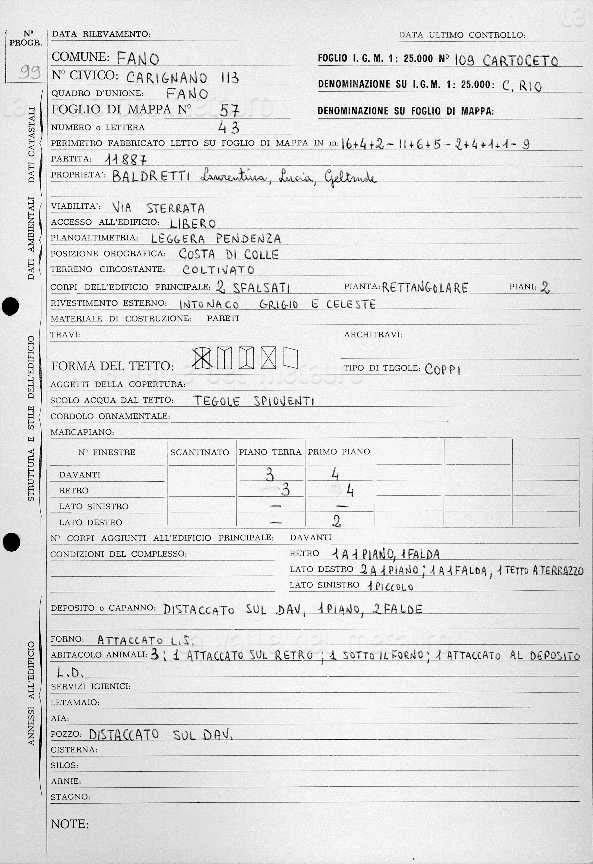 N° PROGR.
99
DATA RILEVAMENTO:
DATA ULTIMO CONTROLLO:
COMUNE: FANO
FOGLIO I. G. M. 1: 25.000 N° 109 CARTOCETO
N° CIVICO: CARIGNANO 113
DENOMINAZIONE SU I.G.M. 1: 25.000: C, RIO
QUADRO D'UNIONE: FANO
FOGLIO DI MAPPA N° 57
DENOMINAZIONE SU FOGLIO DI MAPPA:
NUMERO o LETTERA 43
PERIMETRO FABBRICATO LETTO SU FOGLIO DI MAPPA IN m: 16+4+2-11+6+5-2+4+1+1-9
PARTITA: 11887
PROPRIETA': BALDRETTI Laurentina, Lucia, Geltrude
DATI CATASTALI
VIABILITA': VIA STERRATA
ACCESSO ALL'EDIFICIO: LIBERO
PLANOALTIMETRIA: LEGGERA PENDENZA
POSIZIONE OROGRAFICA: COSTA DI COLLE
TERRENO CIRCOSTANTE: COLTIVATO
DATI AMBIENTALI
CORPI DELL'EDIFICIO PRINCIPALE: 2 SFALSATI PIANTA: RETTANGOLARE PIANI: 2
RIVESTIMENTO ESTERNO: INTONACO GRIGIO E CELESTE
MATERIALE DI COSTRUZIONE: PARETI
TRAVI: ARCHITRAVI:
FORMA DEL TETTO: TIPO DI TEGOLE: COPPI
AGGETTI DELLA COPERTURA:
SCOLO ACQUA DAL TETTO: TEGOLE SPIOVENTI
CORDOLO ORNAMENTALE:
MARCAPIANO:
STRUTTURA E STILE DELL'EDIFICIO
N° FINESTRE SCANTINATO PIANO TERRA PRIMO PIANO
DAVANTI 3 4
RETRO 3 4
LATO SINISTRO – –
LATO DESTRO – 2
N° CORPI AGGIUNTI ALL'EDIFICIO PRINCIPALE: DAVANTI
CONDIZIONI DEL COMPLESSO: RETRO 1 A 1 PIANO, 1 FALDA
LATO DESTRO 2 A 1 PIANO; 1 A 1 FALDA, 1 TETTO A TERRAZZO
LATO SINISTRO 1 PICCOLO
DEPOSITO o CAPANNO: DISTACCATO SUL DAV, 1 PIANO, 2 FALDE
FORNO: ATTACCATO L.S.
ABITACOLO ANIMALI: 3; 1 ATTACCATO SUL RETRO; 1 SOTTO IL FORNO; 1 ATTACCATO AL DEPOSITO
L.D.
SERVIZI IGIENICI:
LETAMAIO:
AIA:
POZZO: DISTACCATO SUL DAV.
CISTERNA:
SILOS:
ARNIE:
STAGNO:
ANNESSI ALL'EDIFICIO
NOTE: